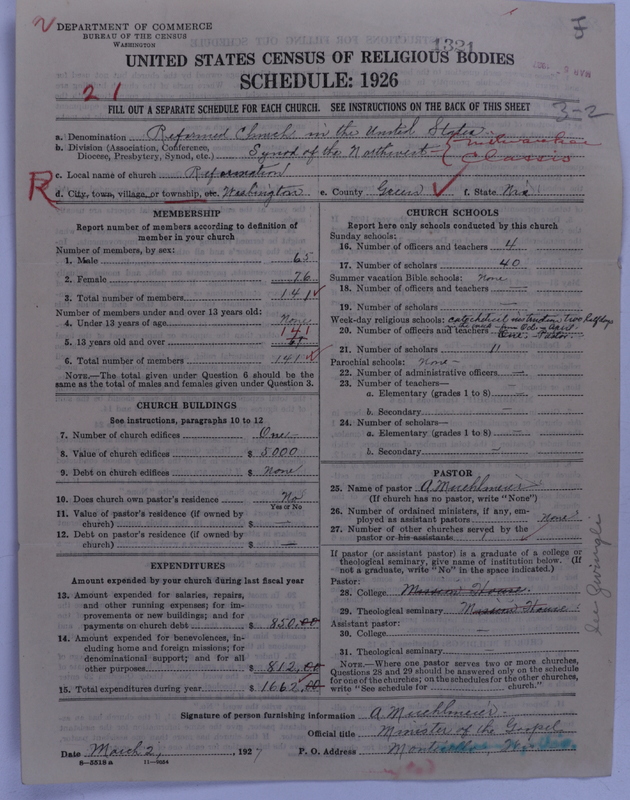 DEPARTMENT OF COMMERCE
BUREAU OF THE CENSUS
WASHINGTON
1321
UNITED STATES CENSUS OF RELIGIOUS BODIES
SCHEDULE: 1926
21
FILL OUT A SEPARATE SCHEDULE FOR EACH CHURCH. SEE INSTRUCTIONS ON THE BACK OF THIS SHEET
3-2
a. Denomination Reformed Church in the United States
b. Division (Association, Conference, Diocese, Presbytery, Synod, etc.) Synod of the Northwest - Milwaukee Classis
c. Local name of church Reformation
R
d. City, town, village, or township, etc. Washington e. County Green f. State Wis
MEMBERSHIP
Report number of members according to definition of
member in your church
Number of members, by sex:
1. Male 65
2. Female 76
3. Total number of members 141
Number of members under and over 13 years old:
4. Under 13 years of age None
5. 13 years old and over 141
6. Total number of members 141
NOTE.—The total given under Question 6 should be
same as the total of males and females given under Question 3.
CHURCH BUILDINGS
See instructions, paragraphs 10 to 12
7. Number of church edifices One
8. Value of church edifices $ 5000
9. Debt on church edifices $ None
10. Does church own pastor's residence No
Yes or No
11. Value of pastor's residence (if owned by
church) $ —
12. Debt on pastor's residence (if owned by
church) $ —
EXPENDITURES
Amount expended by your church during last fiscal year
13. Amount expended for salaries, repairs,
and other running expenses; for im-
provements or new buildings; and for
payments on church debt $ 850.00
14. Amount expended for benevolences, in-
cluding home and foreign missions; for
denominational support; and for all
other purposes $ 812.00
15. Total expenditures during year $ 1662.00
CHURCH SCHOOLS
Report here only schools conducted by this church
Sunday schools:
16. Number of officers and teachers 4
17. Number of scholars 40
Summer vacation Bible schools: None
18. Number of officers and teachers —
19. Number of scholars —
Week-day religious schools: catechetical instruction two half days
20. Number of officers and teachers One. Pastor.
21. Number of scholars 11
Parochial schools: None —
22. Number of administrative officers —
23. Number of teachers—
a. Elementary (grades 1 to 8) —
b. Secondary —
24. Number of scholars—
a. Elementary (grades 1 to 8) —
b. Secondary —
PASTOR
25. Name of pastor A Muehlmeier
(If church has no pastor, write "None")
26. Number of ordained ministers, if any, em-
ployed as assistant pastors None
27. Number of other churches served by the
pastor or his assistants
If pastor (or assistant pastor) is a graduate of a college or
theological seminary, give name of institution below. (If
not a graduate, write "No" in the space indicated.)
Pastor:
28. College Mission House
29. Theological seminary Mission House
Assistant pastor:
30. College —
31. Theological seminary —
NOTE.—Where one pastor serves two or more churches,
Questions 28 and 29 should be answered only on the schedule
for one of the churches; on the schedules for the other churches,
write "See schedule for church."
See Zwingli
Signature of person furnishing information A Muehlmeier
Official title Minister of the Gospel
Date March 2, 1927 P. O. Address Monticello, Wis
8—5518 a 11—9024